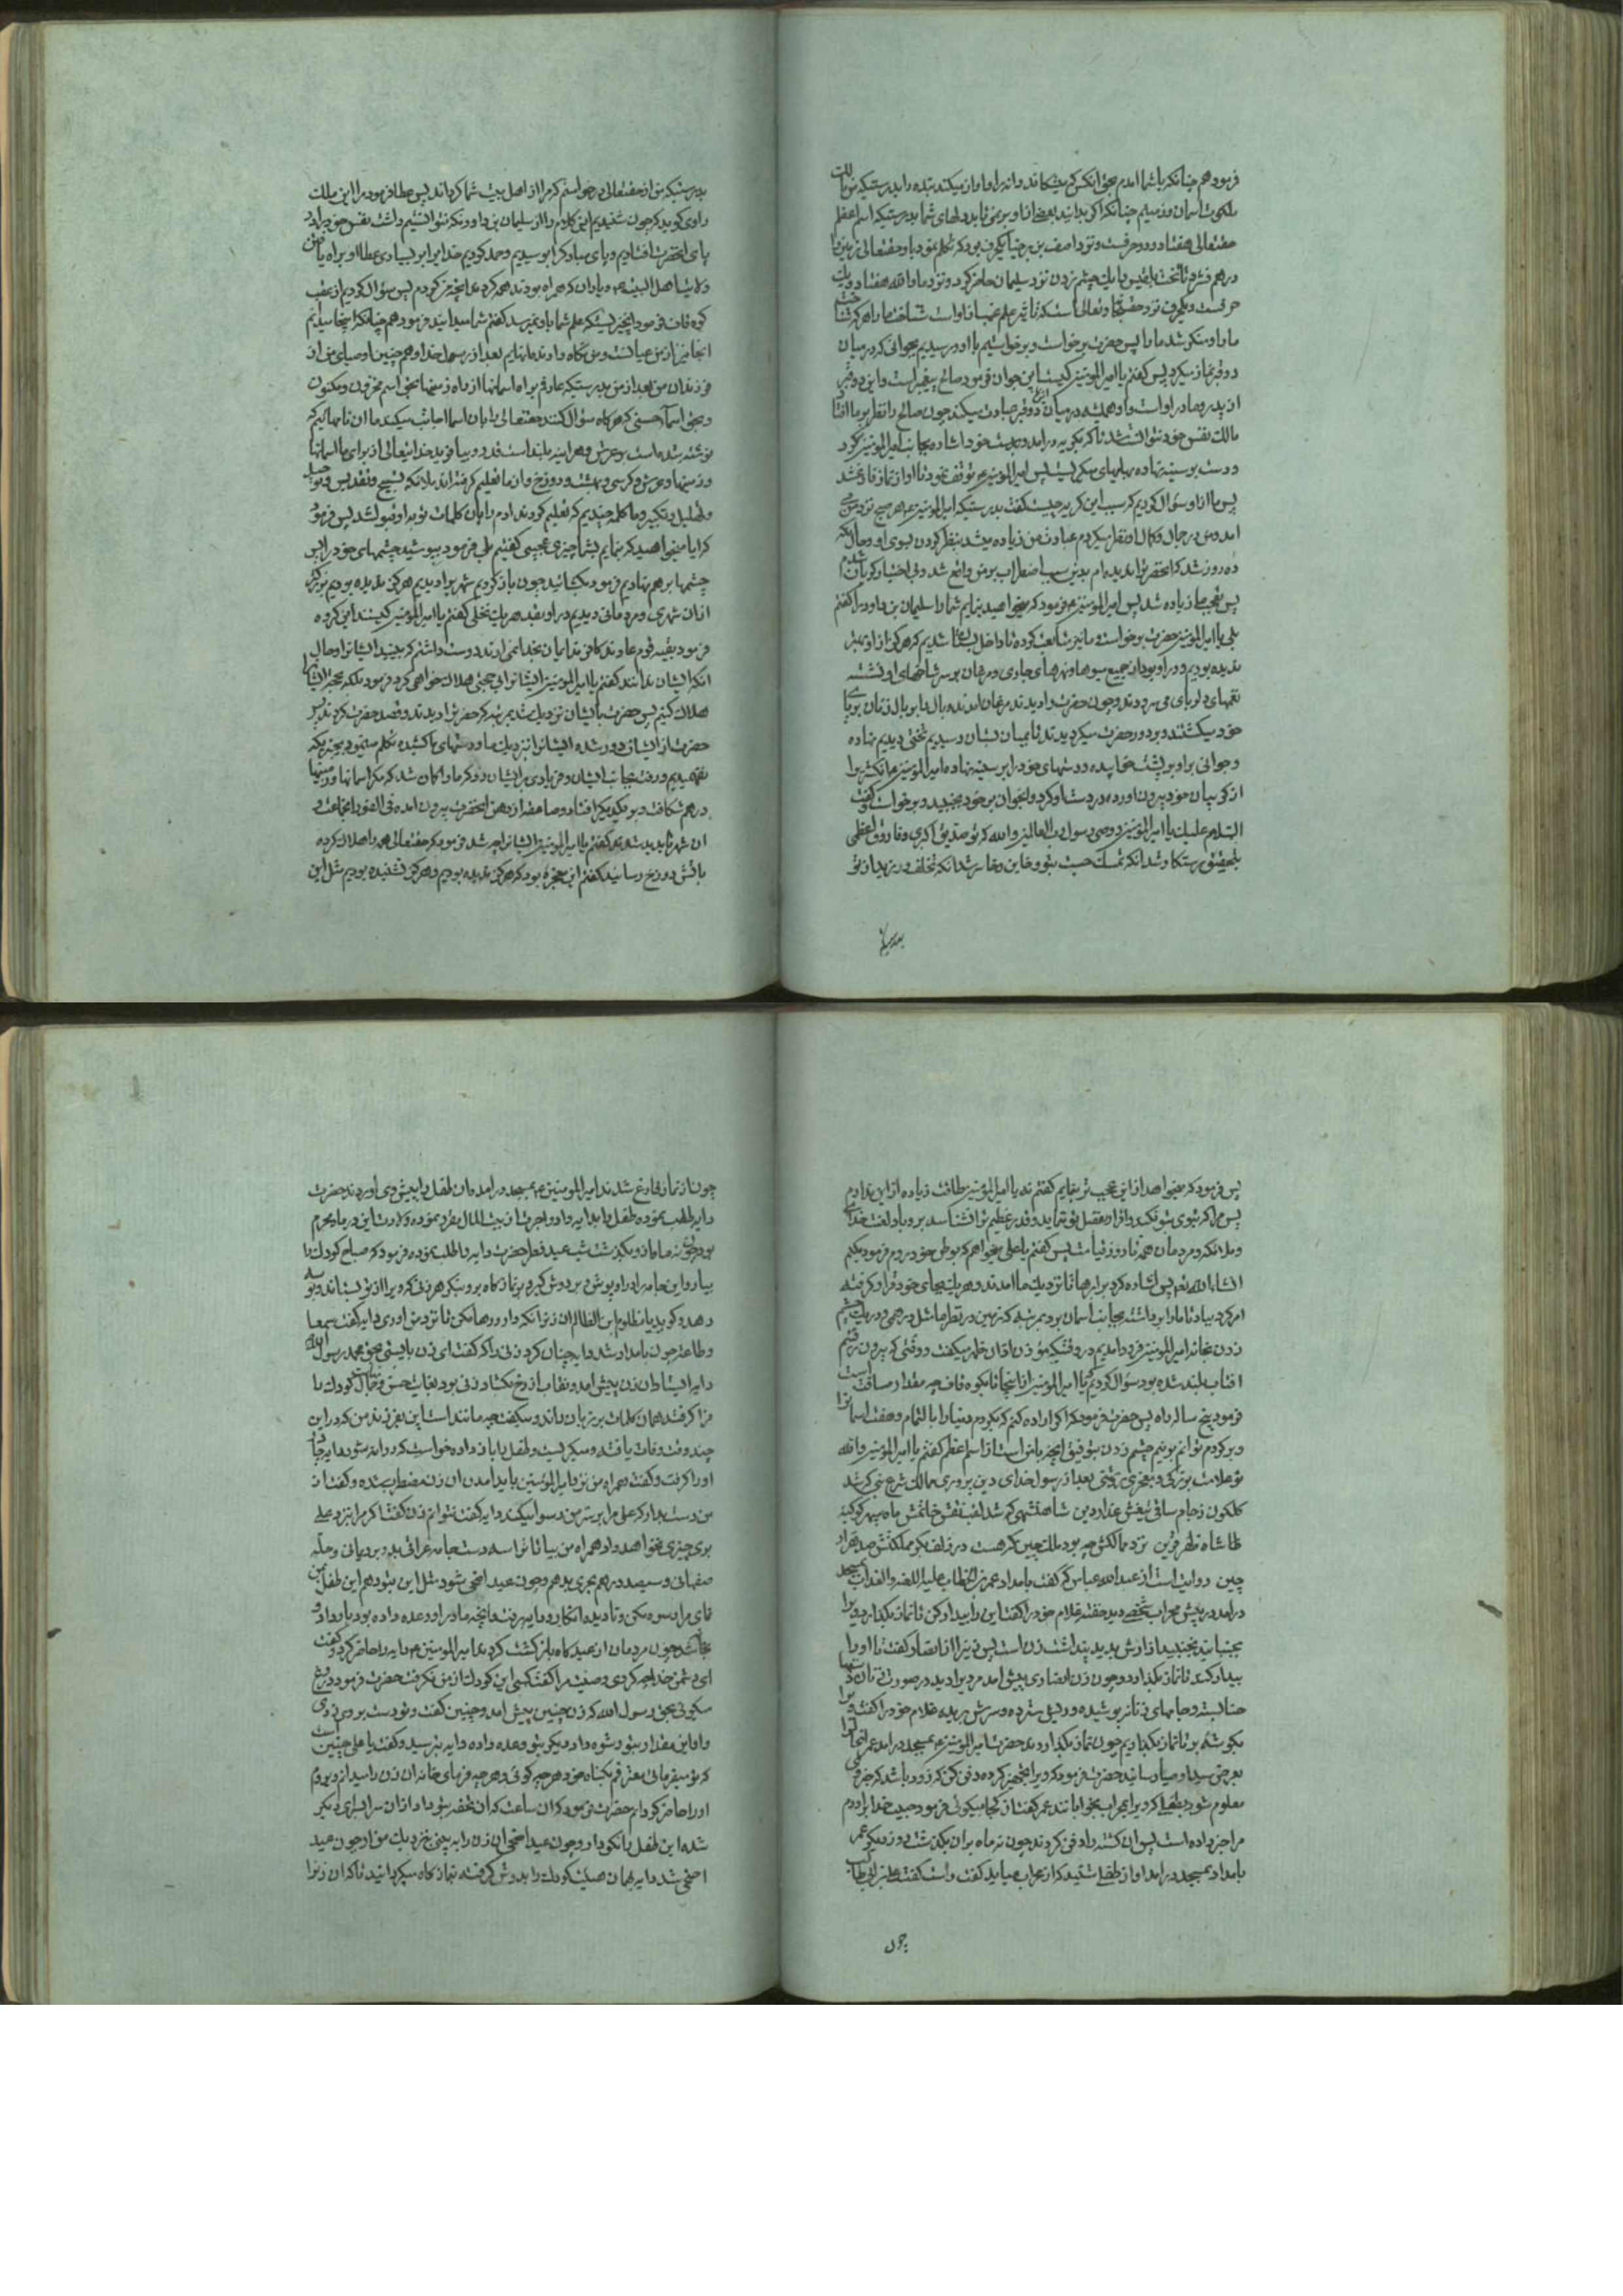 فرمود هم چنانکه با شما امدم بحق انکس که بشکافد دانه را و اواز میکند بنده را بدرستیکه من مالک
ملکوت اسمان و زمینم چنانکه اگر بدانید بعضی از انا و بر نمی تابد دلهای شما بدرستیکه اسم اعظم
حقتعالی هفتاد و دو حرفست و نزد اصف بن برخیا یکحرف بود که تکلم نمود با و حقتعالی زمین را
درهم فشرد تا تخت بلقیس را بیک چشم زدن نزد سلیمان حاضر کرد و نزد ما والله هفتاد و یک
حرفست و یکحرف نزد حقتعالی است که تاثیر علم غیب از اوست شناخت ما را هر که شناخت
ما را و منکر شد ما را پس حضرت برخواست و برخواستیم با او و رسیدیم بجوانی که در میان
دو قبر نماز میکرد پس گفتم یا امیرالمؤمنین کیست این جوان فرمود صالح پیغمبر است و این دو قبر
از پدر و مادر اوست و او همیشه در میان این دو قبر عبادت میکند چون صالح را نظر بر ما افتاد
مالک نفس خود نتوانست شد تا که بگریه درامد و بدست خود اشاره بجانب امیرالمؤمنین کرد
و دست بر سینه نهاده میگریست پس امیرالمؤمنین ع توقف نمود تا او از نماز فارغ شد
پس ما از او سؤال کردیم که سبب این گریه چیست گفت بدرستیکه امیرالمؤمنین ع هر صبح نزد من می
امد و من در جمال و کمال او نظر میکردم عبادت من زیاده میشد بنظر کردن بسوی او و حال انکه
ده روز شد که انحضرت را ندیده ام بدین سبب اضطراب بر من واقع شد و بی اختیار گریان شدم
پس تعجب ما زیاده شد پس امیرالمؤمنین ع فرمود که میخواهید بنمایم شما را سلیمان بن داود را گفتم
بلی یا امیرالمؤمنین حضرت برخواست ما نیز متابعت کرده تا داخل باغی شدیم که هرگز از او بهتر
ندیده بودیم و در او بود از جمیع میوها و نهرهای جاری و مرغان بر سر شاخهای او نشسته
نغمهای دلربای می سرودند و چون حضرت را دیدند مرغان امدند بال با بر بال زنان بر بالای
خود میگشتند و بر دور حضرت میگردیدند تا بمیان بستان رسیدیم تختی دیدیم نهاده
و جوانی بر او بر پشت خوابیده و دستهای خود را بر سینه نهاده امیرالمؤمنین ع انگشتر را
از گریبان خود بیرون اورده در دست او کرد و انجوان بر خود بجنبید و برخواست و گفت
السلام علیک یا امیرالمؤمنین و وصی رسول رب العالمین والله که تو صدیق اکبری و فاروق اعظمی
بتحقیق رستکار شد انکه تمسک جست بتو و خایب و خاسر شد انکه تخلف ورزید از تو
بدرستیکه
بدرستیکه من از حقتعالی درخواستم که مرا از اهل بیت شما گرداند پس عطا فرمود مرا این ملک
راوی گوید که چون شنیدیم این کلام را از سلیمان بن داود نکه نتوانستیم داشت نفس خود را و در
پای انحضرت افتادیم و پای مبارک را بوسیدیم و حمد کردیم خدا را بر بسیاری عطا او براه یافتن
ولایت اهل البیت ع و یاران که همراه بودند همه کردند انچه من کردم پس سؤال کردیم از عقب
کوه قاف فرمود انچیز نیست که علم شما باو نمیرسد گفتم شما میدانید فرمود هم چنانکه اینجا میدانم
انجا نیز از من عیانست و من نگاه دارنده انهایم بعد از رسول خدا و هم چنین اوصیای من از
فرزندان من بعد از من بدرستیکه عارفم براه اسمانها از راه زمینها بحق اسم مخزون و مکنون
و بحق اسماء حسنی که هر گاه سؤال کنند حقتعالی را بان اسما اجابت میکند ما ان نامهائیم که
نوشته شده است بر عرش و هراینه ما بلند است قدر و بیافرید خدایتعالی از برای ما اسمانها
و زمینها و عرش و کرسی و بهشت و دوزخ و از ما تعلیم گرفته اند ملائکه تسبیح و تقدیس و توحید
و تهلیل و تکبیر و ما کلمه چندیم که تعلیم کردند ادم را بان کلمات توبه او قبول شد پس فرمود
که ایا میخواهید که بنمایم بشما چیزی عجیب گفتم بلی فرمود بپوشید چشمهای خود را پس
چشمها بر هم نهادیم فرمود بگشائید چون باز کردیم شهری را دیدیم هرگز ندیده بودیم بزرگتر
از ان شهری و مردمانی دیدیم در او بقد هر یک نخلی گفتم یا امیرالمؤمنین کیستند این گروه
فرمود بقیه قوم عادند کافرند ایمان بخدا نمی ارند دوست داشتم که ببینید ایشانرا و حال
انکه ایشان ندانند گفتم یا امیرالمؤمنین ایشانرا بی حجتی هلاک خواهی کرد فرمود بلکه بحجت ایشانرا
هلاک کنیم پس حضرت بایشان نزدیک شد چون که حضرت را دیدند و قصد حضرت کردند پس
حضرت از ایشان دور شده ایشانرا نزدیک ما و دستهای ما کشیده تکلم مینمود بچیزیکه
نفهمیدیم و رفت بجانب ایشان و فریادی بر ایشان زد که ما را گمان شد که مگر اسمانها و زمینها
درهم شکافت و بر یکدیگر افتاد و صاعقه از دهن انحضرت بیرون امده فی الفور انجماعت و
ان شهر ناپدید شدند گفتم یا امیرالمؤمنین ایشانرا چه شد فرمود که حقتعالی همه را هلاک کرده
باتش دوزخ رسانید گفتم این معجزه بود که هرگز ندیده بودیم و هرگز نشنیده بودیم مثل این
پس فرمود که میخواهید از این عجیب تر بنمایم گفتم نه یا امیرالمؤمنین طاقت زیاده از این نداریم
پس هر که بتو تولی نکند و اقرار بفضل تو ننماید و قدر عظیم ترا نشناسد بر او باد لعنت خدای
و ملائکه و مردمان همه تا روز قیامت پس گفتم یا علی میخواهم که بوطن خود رویم فرمود میکنم
انشاءالله تع پس اشاره کرد بر ابرها تا نزدیک ما امدند و هر یک بجای خود قرار گرفته
امر کرد بباد تا ما را برداشته بجانب اسمان برد بمرتبه که زمین در نظر ما مثل درهمی و در یک چشم
زدن بخانه امیرالمؤمنین فرود امدیم در وقتیکه مؤذن اذان ظهر میگفت و وقتی که بیرون رفتیم
افتاب بلند شده بود سؤال کردیم که یا امیرالمؤمنین از اینجا تا بکوه قاف چه مقدار مسافت است
فرمود پنج ساله راه پس حضرت فرمود که اگر اراده کنم که بگردم دنیا را بالتمام و هفت اسمانرا
و برگردم توانم بنیم چشم زدن بتوفیق انچه با من است از اسم اعظم گفتم یا امیرالمؤمنین والله
تو علامت بزرگی و معجزی بحجتی بعد از رسول خدای دین پروری ممالک شرع نبی که شد
گلگون ز جام ساقی تیغش عذار دین شاهنشهی که شد لقب نقش خاتمش ماه سپهر کوکبه
طا شاه ظفر قرین نزد ممالکش چه بود ملک چین که هست در زلف یکی مملکتش صد هزار
چین روایت است از عبدالله عباس که گفت بامداد عمر بن الخطاب علیه اللعنه والعذاب بمسجد
درامد در پیش محراب شخصی دید خفته غلام خود را گفت این را بیدار کن تا نماز بگذارد ویرا
بجنبانید نجنبید ازارش بدید پنداشت زن است پس زنی را از انصار گفت تا او را
بیدار کند تا نماز بگذارد و چون زن انصاری پیش امد مردی را دید در صورت زنان دستها
حنا بسته و جامهای زنانه پوشیده و ریش سترده و سرش بریده غلام خود را گفت ویرا
بگوشه بر تا نماز بگذاریم چون نماز بگذاردند حضرت امیرالمؤمنین ع بمسجد درامد عمر انحال را
بعرض سید اوصیا رسانید حضرت فرمود که ویرا تجهیز کرده دفن کن که زود باشد که خونی
معلوم شود بطفلی که در برابر محراب بخوابانند عمر گفت از کجا میگوئی فرمود حبیب خدا برادرم
مرا خبر داده است پس ان کشته را دفن کردند چون نه ماه بر ان بگذشت روزی عمر
بامداد بمسجد درامد اواز طفلی شنید که از محراب میاید گفت راست گفت علی بن ابی طالب
چون
چون از نماز فارغ شدند امیرالمؤمنین ع بمسجد درامد ان طفل را پیش وی اوردند حضرت
دایه طلب نموده طفل را بدایه داد و اجرت از بیت المال مقرر نموده ولادت این در ماه محرم
بود چون نه ماه از او بگذشت شب عید فطر حضرت دایه را طلب نموده فرمود که صباح کودک را
بیار و این جامه را در او پوش و بر دوش گیر و بنماز گاه برو بنگر هر زنی که ویرا از تو بستاند و بوسه
دهد و گوید یا مظلوم ابن الظالم ان زنرا نگه دار و رها مکن تا نزد من اوری دایه گفت سمعا
و طاعة چون بامداد شد دایه چنان کرد زنی ندا کرد گفت ای زن بایست بحق محمد رسول الله
دایه ایستاد ان زن پیش امد و نقاب از رخ بگشاد زنی بود بغایت حسن و جمال کودک را
فرا گرفت همان کلمات بر زبان راند و میگفت چه مانند است این بفرزند من که در این
چند وقت وفات یافته و میگریست و طفل را باز داده خواست که روانه شود دایه جامه
او را گرفت و گفت همراه من نزد امیرالمؤمنین باید امدن ان زن مضطرب شده و گفت از
من دست بدار که علی مرا بر سر من رسوا میکند دایه گفت نتوانم زن گفت اگر مرا نزد علی
بری چیزی نخواهد داد همراه من بیا تا ترا سه دست جامه عراقی بدهم و بردیمانی و حله
صفهانی و سیصد درهم هجری بدهم و چون عید اضحی شود مثل این بتو دهم این طفل بمن
نمای مرا رسوا مکن و نادیده انگار دایه برفت و انچه ما در او وعده داده بود باو داد و
بجا شد چون مردمان از عیدگاه باز گشت کردند امیرالمؤمنین ع دایه را حاضر کرد و گفت
ای دشمن خدا چه کردی وصیت مرا گفت کسی این کودک از من نگرفت حضرت فرمود دروغ
میگوئی بحق رسول الله که زن چنین پیش امد و چنین گفت و تو دست بر وی زدی
و او این مقدار بتو رشوه داد و دیگر بتو وعده داده دایه بترسید و گفت یا علی چنین است
که تو میفرمائی معترفم بگناه خود هر چه گوئی و هر چه فرمای خانه ان زن را میدانم بروم
او را حاضر کردانم حضرت فرمود که ان ساعت که ان تحفه بتو داد از ان سرا بسرای دیگر
شد این طفل را نگه دار و چون عید اضحی ان زن را به بینی نزدیک من ار چون عید
اضحی شد دایه بهمان هیئت کودک را بدوش گرفته بنماز گاه میگردانید تا که ان زنرا